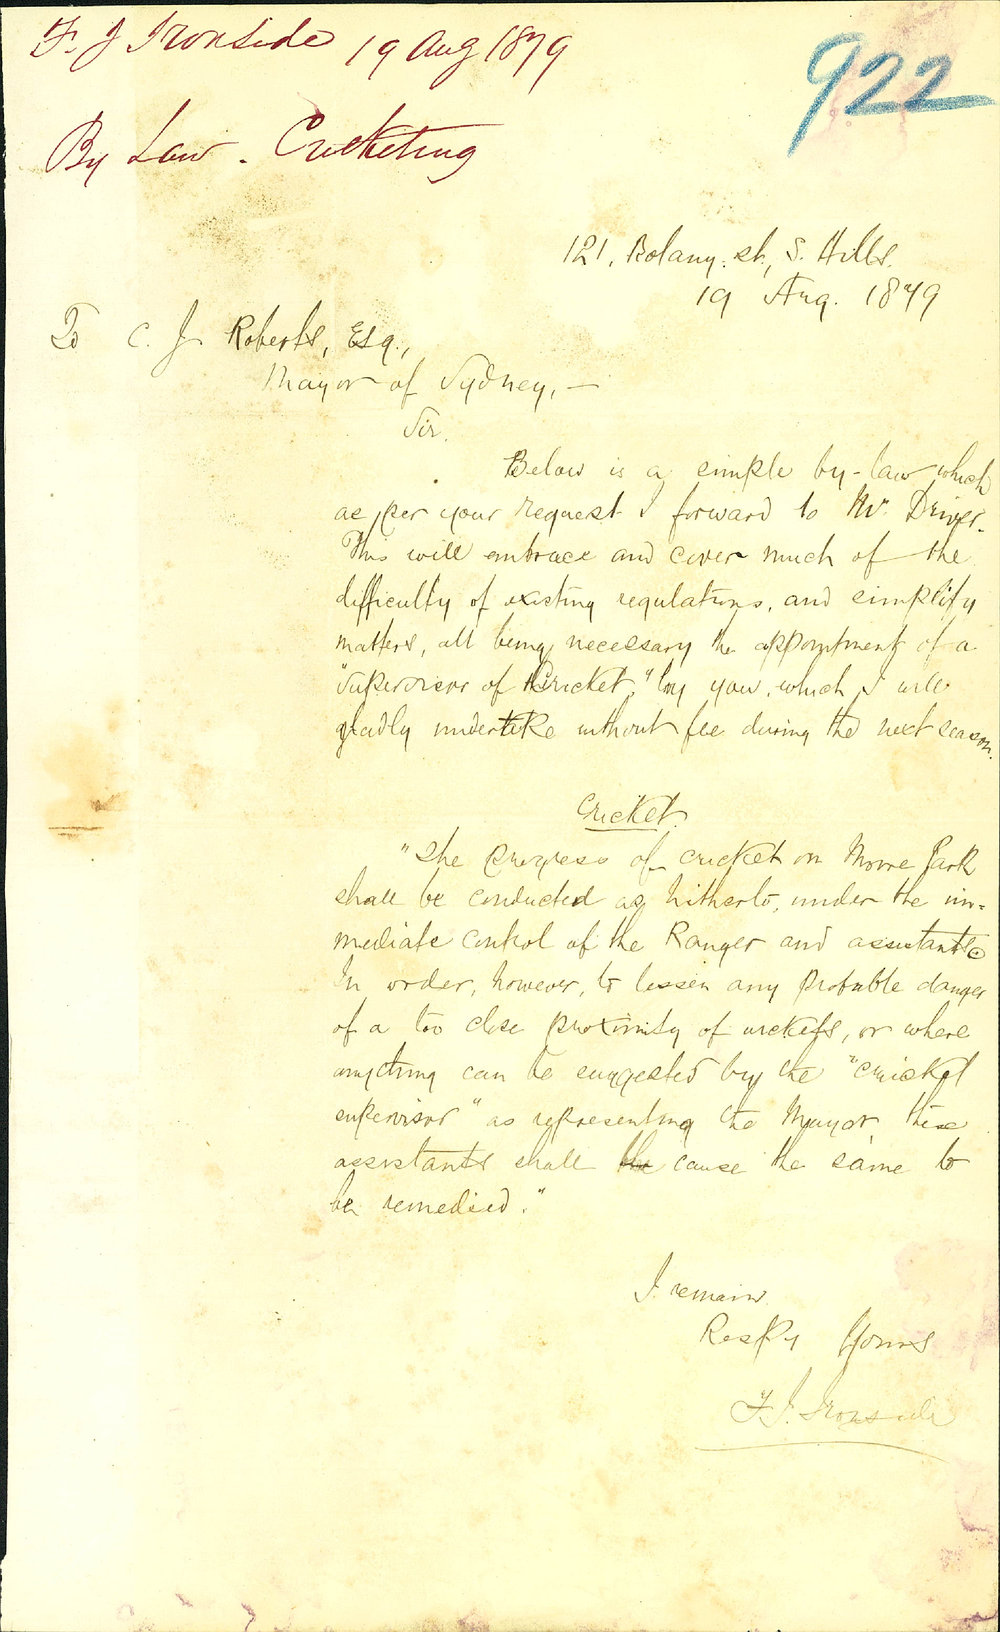 F. J Ironside 19 Aug 1879
922
By Law. Cricketing
121, Botany. st., S. Hills.
19 Aug. 1879
To C. J. Roberts, Esq.,
Mayor of Sydney, —
Sir,
Below is a simple by-law which
as per your request I forward to Mr. Driver.
This will embrace and cover much of the
difficulty of existing regulations, and simplify
matters, all being necessary the appointment of a
"Supervisor of Cricket," by you, which I will
gladly undertake without fee during the next season.
Cricket.
"The progress of cricket on Moore Park
shall be conducted as hitherto, under the im-
mediate control of the Ranger and assistants.
In order, however, to lessen any probable danger
of a too close proximity of wickets, or where
anything can be suggested by the "cricket
supervisor" as representing the Mayor these
assistants shall the cause the same to
be remedied."
I remain
Respy Yours
F. J. Ironside